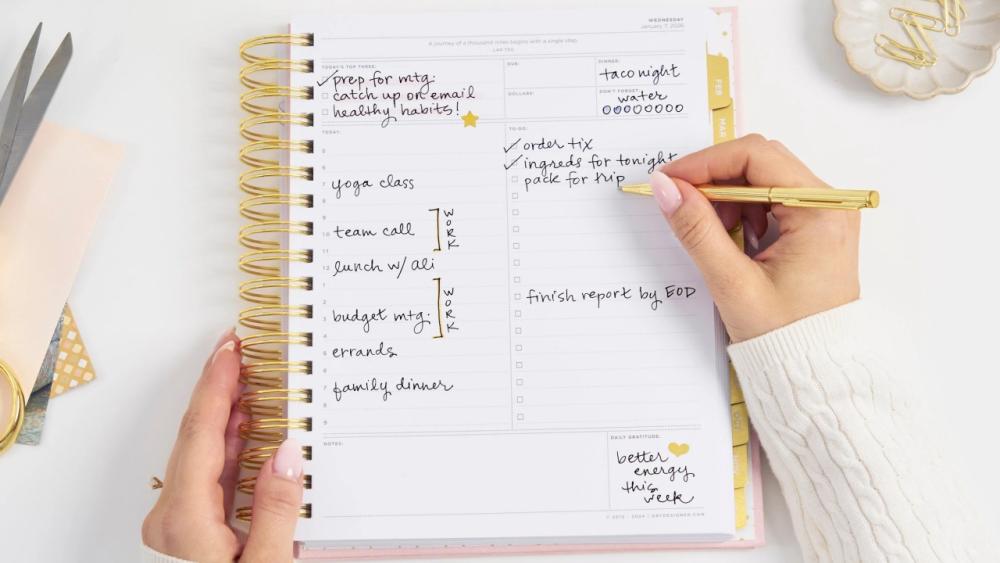 WEDNESDAY
January 7, 2026
A journey of a thousand miles begins with a single step.
LAO TZU
TODAY'S TOP THREE:
prep for mtg.
catch up on email
healthy habits!
DUE:
DOLLARS:
DINNER:
taco night
DON'T FORGET:
water
TODAY:
5
6
7 yoga class
8
9
10 team call
11
WORK
12 lunch w/ ali
1
2
3 budget mtg.
4
WORK
5 errands
6
7 family dinner
8
9
TO-DO:
order tix
ingreds for tonight
pack for trip
finish report by EOD
NOTES:
DAILY GRATITUDE:
better
energy
this
week
FEB
MAR